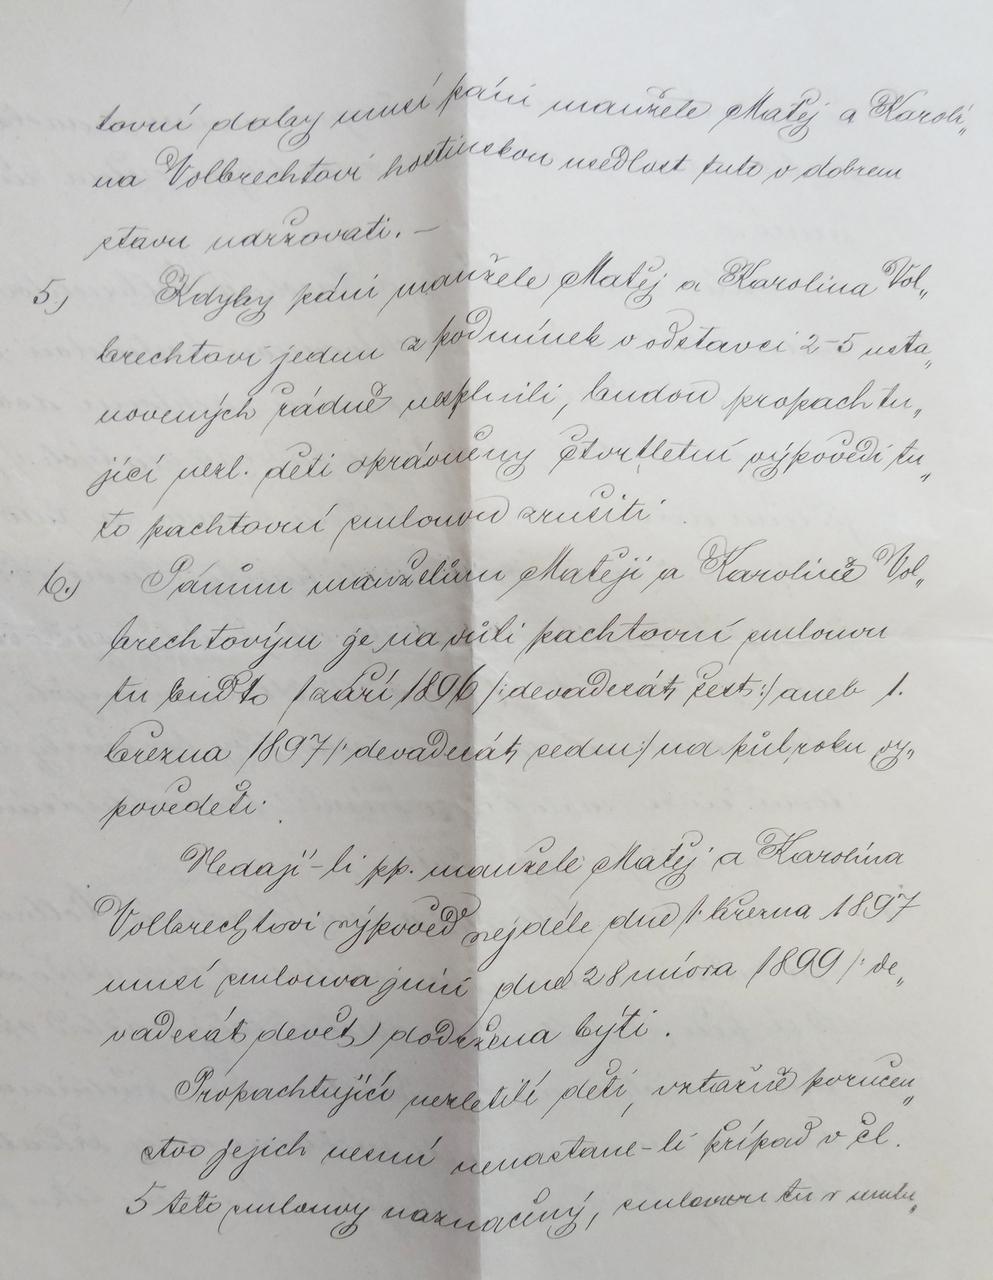 tovní doby musí páni manžele Matěj a Karoli„
na Volbrechtovi hostinskou usedlost tuto v dobrem
stavu udržovati. —
5.) Kdyby páni manžele Matěj a Karolina Vol„
brechtovi jednu z podmínek v odstavci 2-5 usta„
novených řádně nesplnili, budou propachtu„
jící nezl. děti oprávněny čtvrtletní výpovědí tu„
to pachtovní smlouvu zrušiti
6.) Pánům manželům Matěji a Karolině Vol„
brechtovým je na vůli pachtovní smlouvu
tu buďto 1 září 1896 /: devadesát šest :/ aneb 1.
března 1897 /: devadesát sedm :/ na půl roku vy„
povědeti.
Nedají-li pp. manžele Matěj a Karolina
Volbrechtovi výpověď nejdéle dne 1. března 1897
musí smlouva jiní dne 28 února 1899 /: de„
vadesát devět) dodržena býti.
Propachtující nezletilí děti, vztažně poručen„
stvo jejich nesmí nenastane-li případ v čl.
5 teto smlouvy naznačený, smlouvu tu v